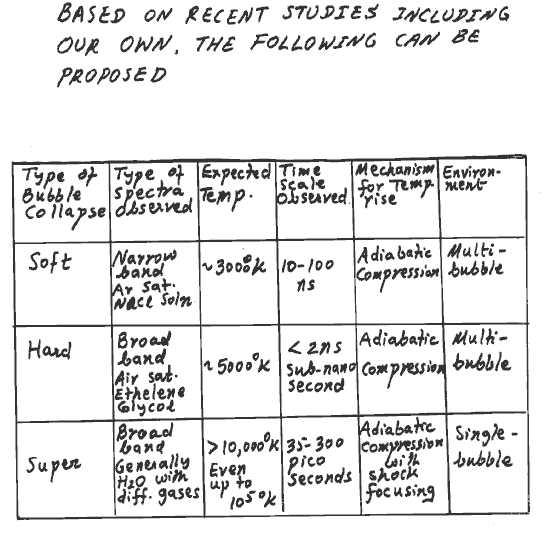 BASED ON RECENT STUDIES INCLUDING
OUR OWN, THE FOLLOWING CAN BE
PROPOSED
Type of
Bubble
Collapse
Type of
Spectra
Observed
Expected
Temp.
Time
Scale
Observed
Mechanism
for Temp
rise
Environ-
ment
Soft
Narrow
band
Ar sat.
NaCl Soln
~3000°K
10-100
ns
Adiabatic
Compression
Multi-
bubble
Hard
Broad
band
Air sat.
Ethelene
Glycol
~5000°K
<2ns
Sub-nano
second
Adiabatic
Compression
Multi-
bubble
Super
Broad
band
Generally
H2O with
diff. gases
>10,000°K
Even
up to
10⁵°K
35-300
pico
Seconds
Adiabatic
Compression
with
shock
focusing
Single-
bubble